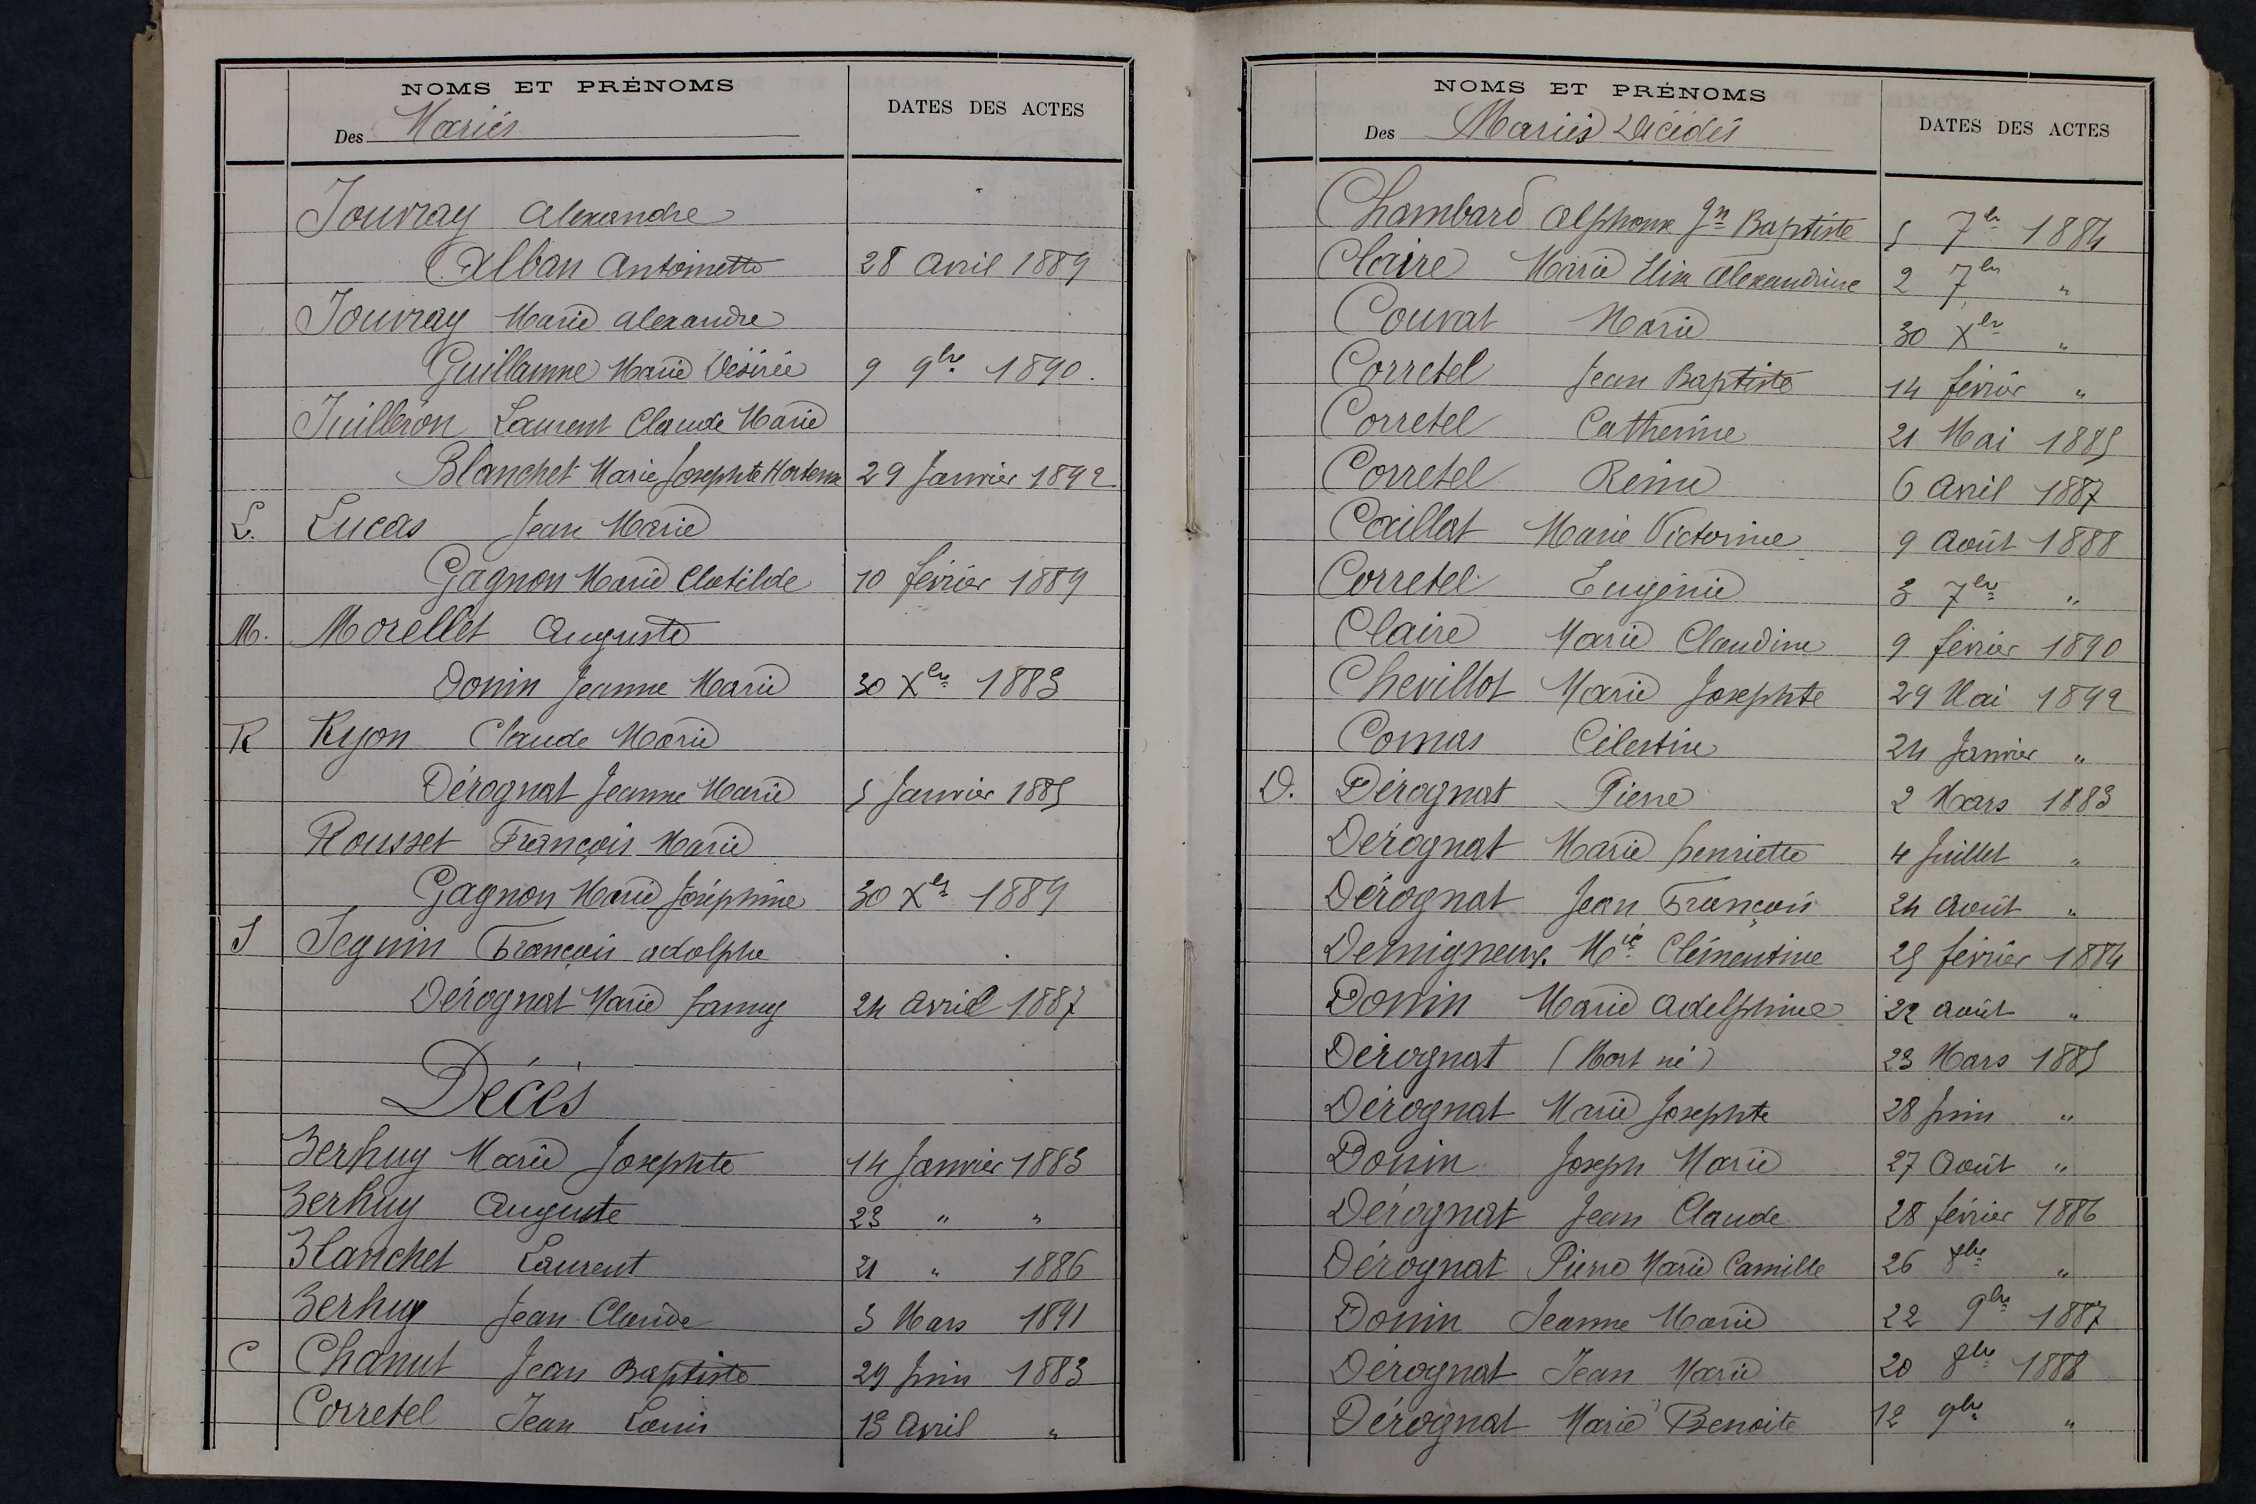 NOMS ET PRÉNOMS
Des Mariés
DATES DES ACTES
Jouvray Alexandre
Alban Antoinette 28 Avril 1889
Jouvray Marie Alexandre
Guillaume Marie Désirée 9 9bre 1890.
Juilleron Laurent Claude Marie
Blanchet Marie Josephte Hortense 29 Janvier 1892
L. Lucas Jean Marie
Gagnon Marie Clotilde 10 février 1889
M. Morellet Auguste
Donin Jeanne Marie 30 Xbre 1883
R Ryon Claude Marie
Dérognat Jeanne Marie 5 Janvier 1885
Rousset François Marie
Gagnon Marie Joséphine 30 Xbre 1889
S Seguin François Adolphe
Dérognat Marie Fanny 24 Avril 1887
Décès
Berhuy Marie Josephte 14 Janvier 1883
Berhuy Auguste 23 " "
Blanchet Laurent 21 " 1886
Berhuy Jean Claude 3 Mars 1891
C Chanut Jean Baptiste 29 Juin 1883
Corretel Jean Louis 13 Avril "
NOMS ET PRÉNOMS
Des Mariés Décédés
DATES DES ACTES
Chambard Alphonse Jn Baptiste 5 7bre 1884
Claire Marie Elisa Alexandrine 2 7bre "
Couvat Marie 30 Xbre "
Corretel Jean Baptiste 14 février "
Corretel Catherine 21 Mai 1885
Corretel Reine 6 Avril 1887
Caillat Marie Victorine 9 Août 1888
Corretel Eugénie 3 7bre "
Claire Marie Claudine 9 février 1890
Chevillot Marie Josephte 29 Mai 1892
Comas Célestine 24 Janvier "
D. Dérognat Pierre 2 Mars 1883
Dérognat Marie henriette 4 Juillet "
Dérognat Jean François 24 Août "
Demigneux Mie Clémentine 25 février 1884
Donin Marie Adelphine 22 Août "
Dérognat (Mort né) 23 Mars 1885
Dérognat Marie Josephte 28 Juin "
Donin Joseph Marie 27 Août "
Dérognat Jean Claude 28 février 1886
Dérognat Pierre Marie Camille 26 8bre "
Donin Jeanne Marie 22 9bre 1887
Dérognat Jean Marie 20 8bre 1888
Dérognat Marie Benoite 12 9bre "